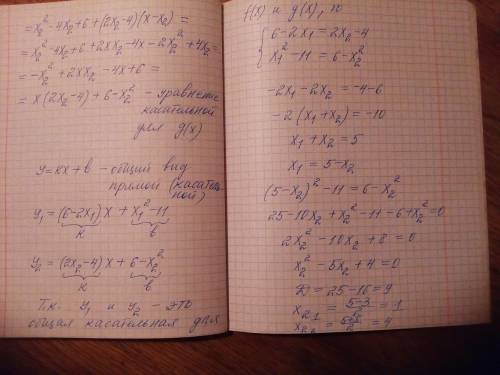 = x₂² - 4x₂ + 6 + (2x₂ - 4)(x - x₂) =
= x₂² - 4x₂ + 6 + 2xx₂ - 4x - 2x₂² + 4x₂ =
= -x₂² + 2xx₂ - 4x + 6 =
= x(2x₂ - 4) + 6 - x₂² - уравнение
касательной
для g(x)
y = kx + b - общий вид
прямой (касатель-
ной)
y₁ = (6 - 2x₁)x + x₁² - 11
k b
y₂ = (2x₂ - 4)x + 6 - x₂²
k b
Т.к. y₁ и y₂ - это
общая касательная для
f(x) и g(x), то
{ 6 - 2x₁ = 2x₂ - 4
x₁² - 11 = 6 - x₂²
-2x₁ - 2x₂ = -4 - 6
-2(x₁ + x₂) = -10
x₁ + x₂ = 5
x₁ = 5 - x₂
(5 - x₂)² - 11 = 6 - x₂²
25 - 10x₂ + x₂² - 11 - 6 + x₂² = 0
2x₂² - 10x₂ + 8 = 0
x₂² - 5x₂ + 4 = 0
D = 25 - 16 = 9
x₂₁ = (5-3)/2 = 1
x₂₂ = (5+3)/2 = 4